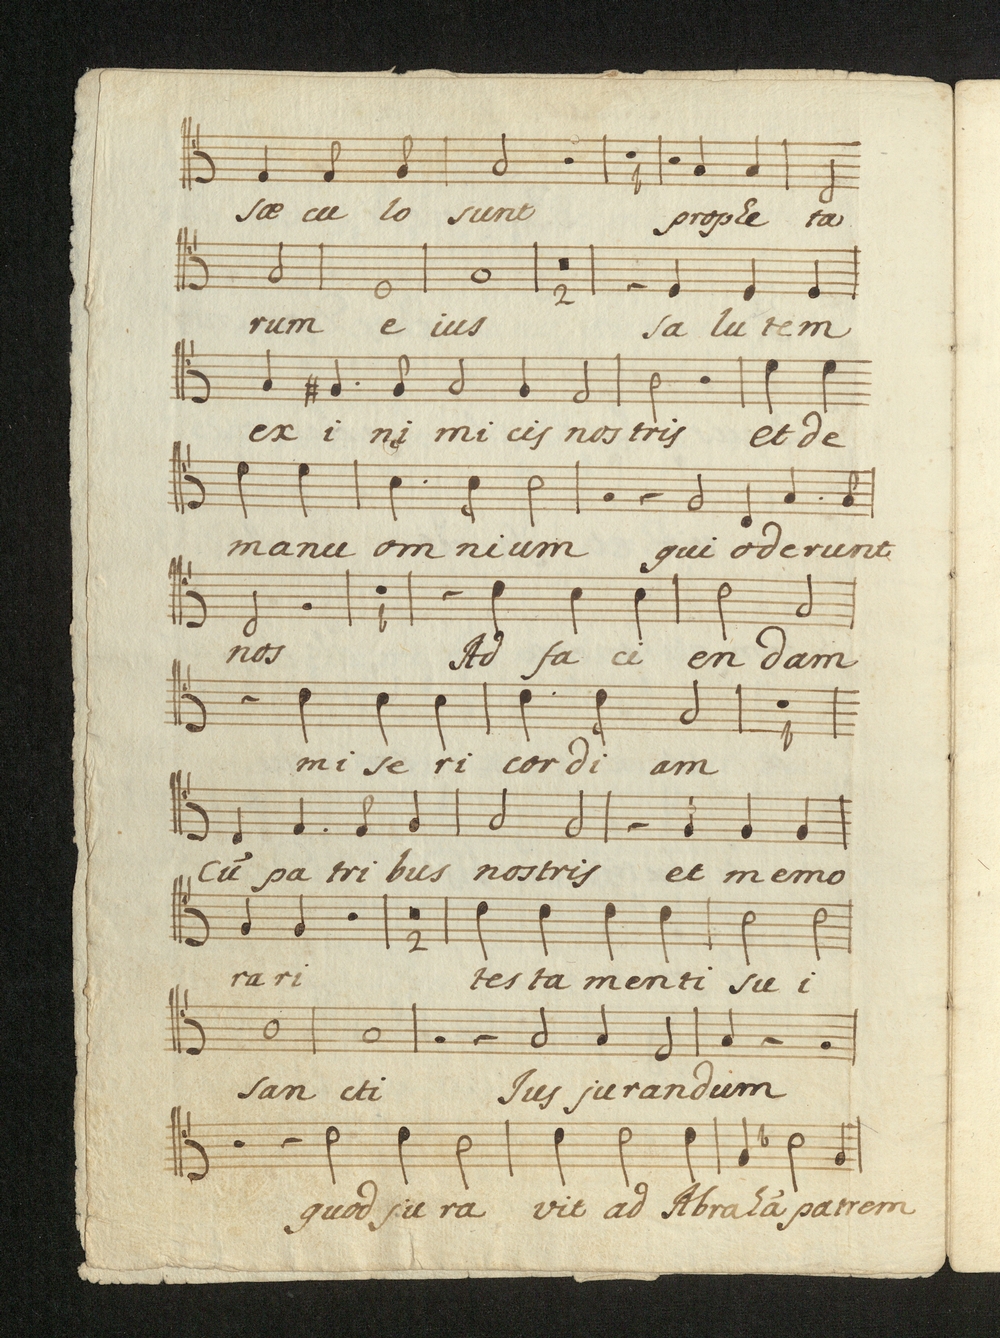 sæ cu lo sunt prophe ta
rum e ius sa lu tem
2
ex i ni mi cis nos tris et de
manu om nium qui oderunt
nos Ad fa ci en dam
mi se ri cor di am
Cũ pa tri bus nostris et memo
ra ri tes ta menti su i
2
san cti Jus ju randum
quod ju ra vit ad Abrahã patrem